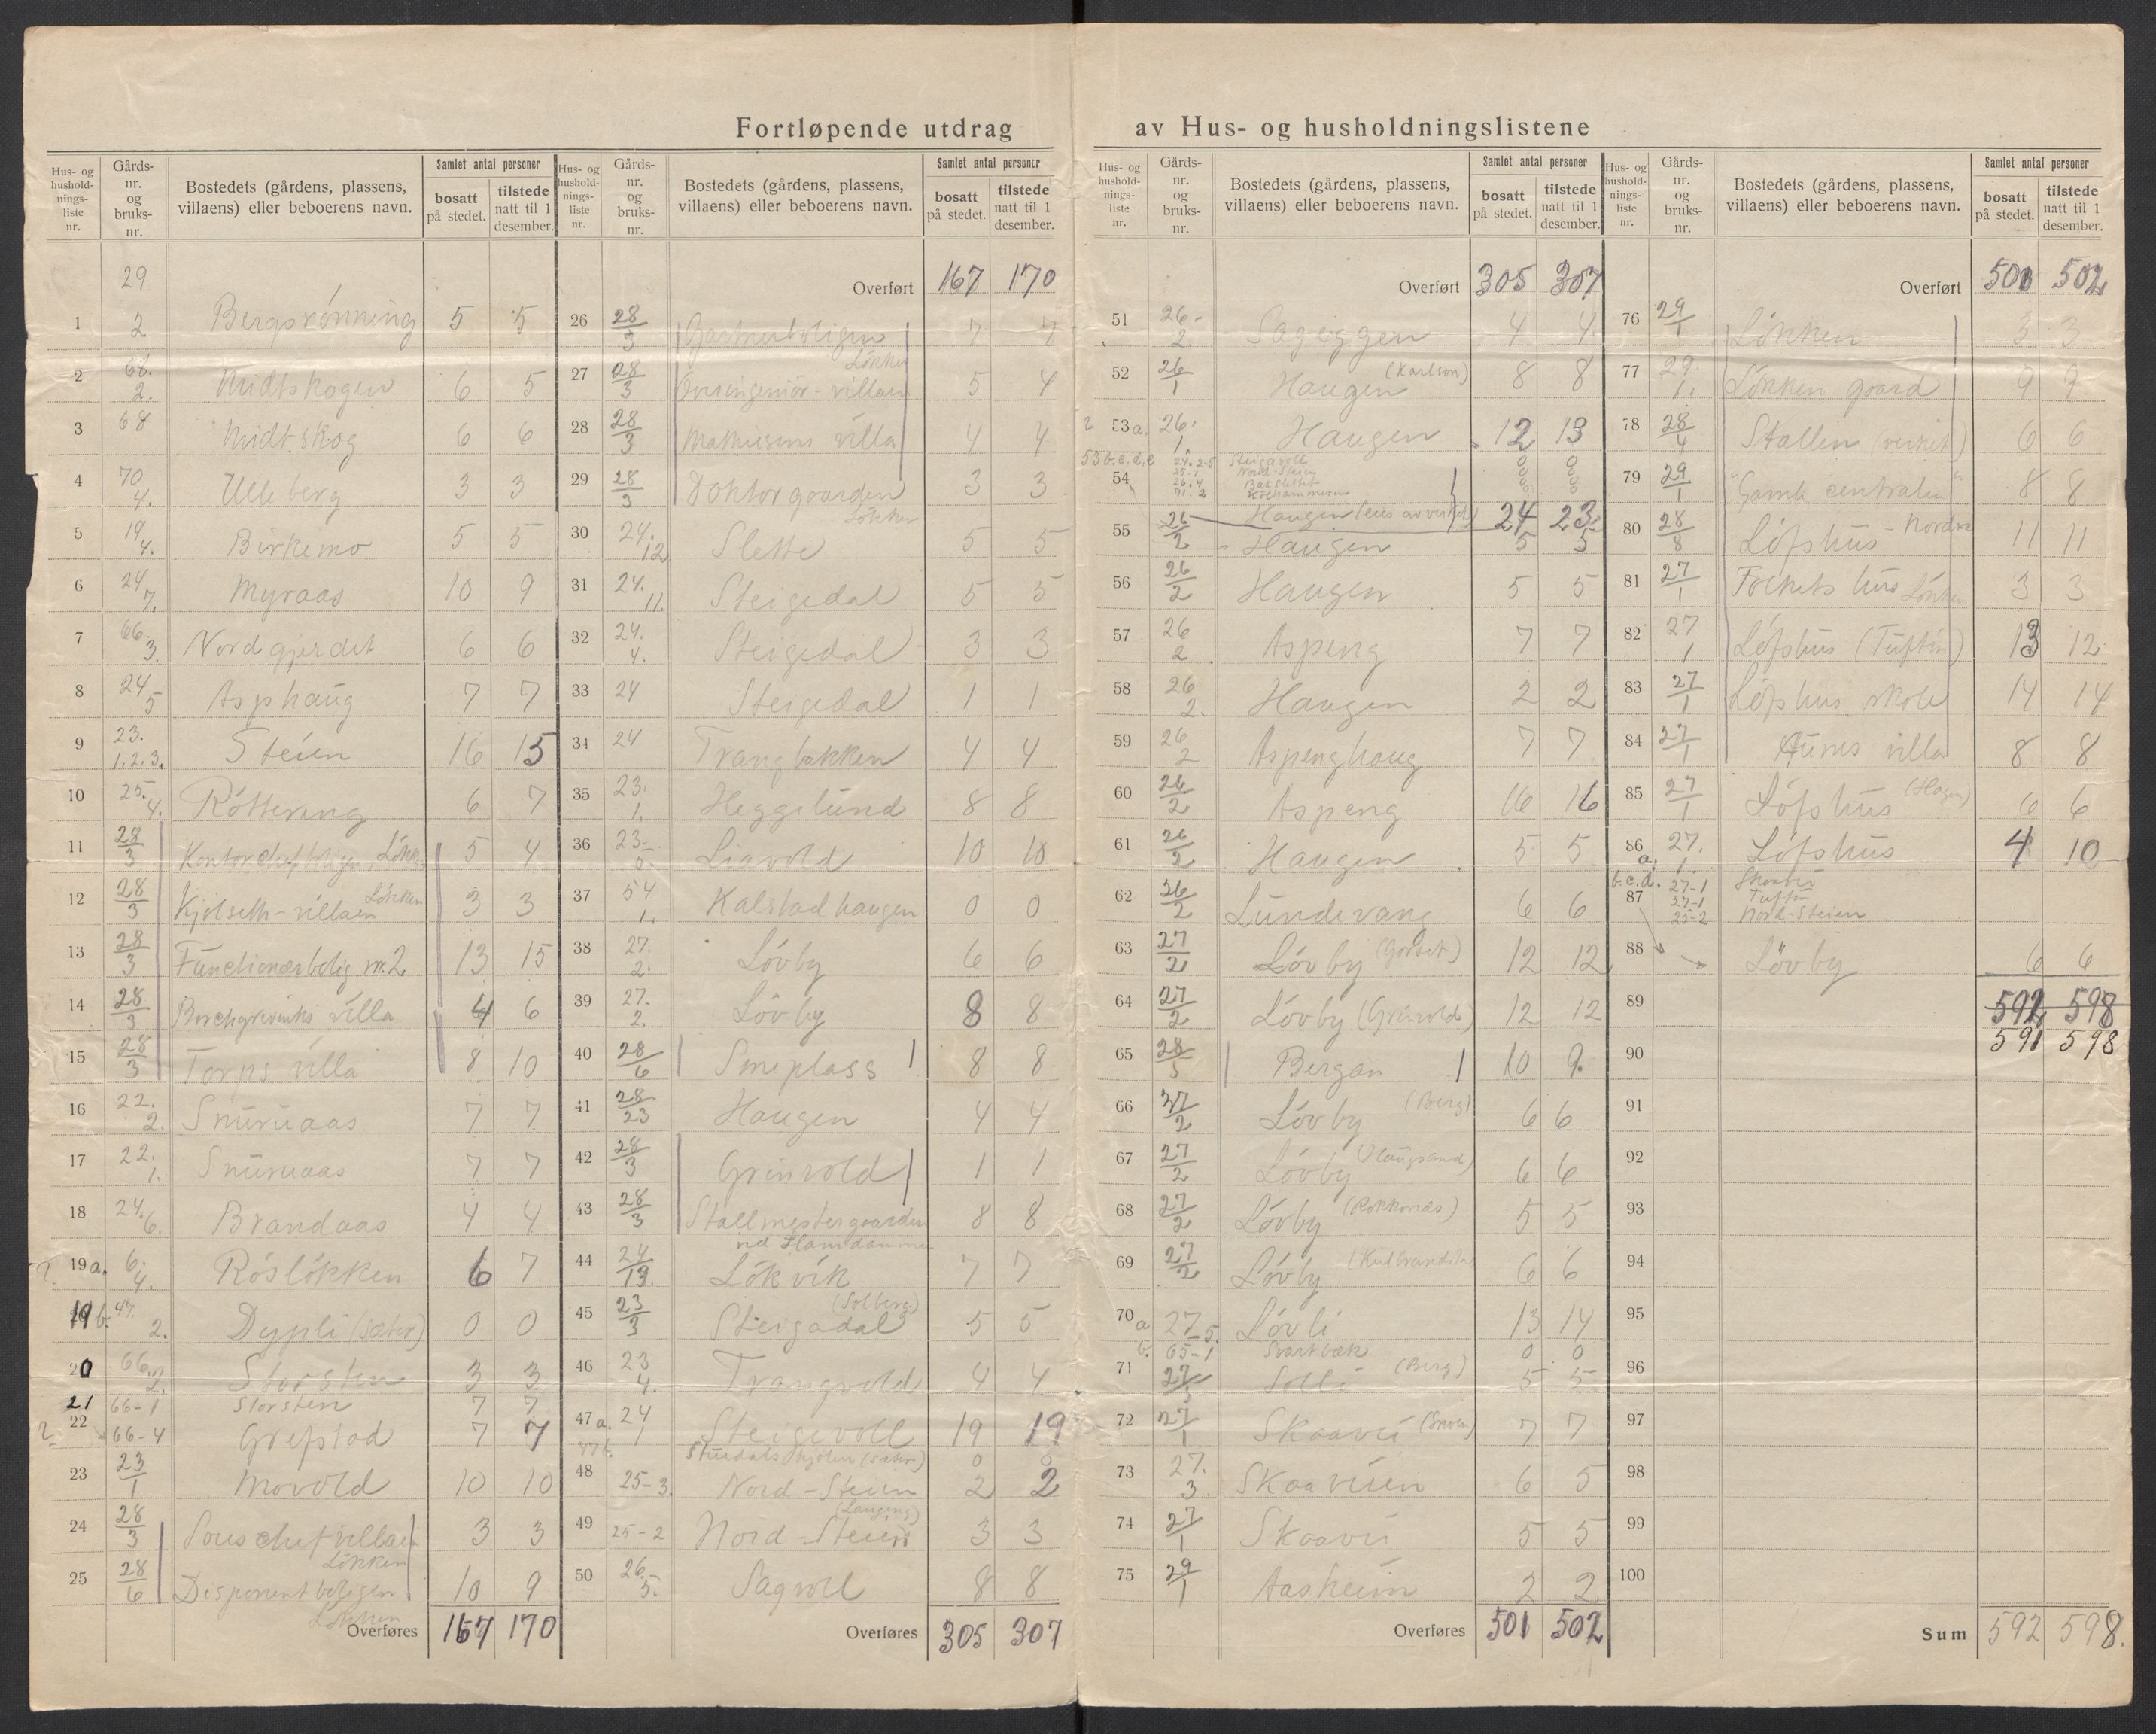 Fortløpende utdrag av Hus- og husholdningslistene
Hus- og husholdningsliste nr. | Gårdsnr. og bruksnr. | Bostedets (gårdens, plassens, villaens) eller beboerens navn. | Samlet antal personer bosatt på stedet. | tilstede natt til 1 desember.
29
1 2 Bergsrønning 5 5
2 68. 2. Midtskogen 6 5
3 68 Midt.skog 6 6
4 70 4. Ulleberg 3 3
5 19 4. Birkemo 5 5
6 24 7. Myraas 10 9
7 66. 3. Nordgjerdet 6 6
8 24 5 Asphaug 7 7
9 23. 1.2.3. Steien 16 15
10 25. 4. Röttereng 6 7
11 28/3 Kontorchefboligen, Løkken 5 4
12 28/3 Kjølseth-villaen Løkken 3 3
13 28/3 Functionærbolig nr. 2 13 15
14 28/3 Borchgrevinks villa 4 6
15 28/3 Torps villa 8 10
16 22. 2. Snuruaas 7 7
17 22. 1. Snuruaas 7 7
18 24. 6. Brandaas 4 4
19 a. 6. 4. Rösløkken 6 7
19 b. 47. 2. Dypli (sæter) 0 0
20 66. 2. Storsten 3 3
21 66-1 Storsten 7 7
22 66-4 Grefstad 7 7
23 23/1 Movold 10 10
24 28/3 Souschefvillaen Løkken 3 3
25 28/6 Disponentboligen Løkken 10 9
Overføres 167 170
Overført 167 170
26 28/3 Gartnerboligen 7 7
27 28/3 Løkken Overingeniør-villaen 5 4
28 28/3 Mathiesens villa 4 4
29 28/3 Doktorgaarden Løkken 3 3
30 24. 12 Slette 5 5
31 24. 11. Steigedal 5 5
32 24. 4. Steigedal 3 3
33 24 Steigedal 1 1
34 24 Trangbakken 4 4
35 23. 1. Heggelund 8 8
36 23 Liavold 10 10
37 54 1. Kalstadhaugen 0 0
38 27. 2. Lövby 6 6
39 27. 2. Lövby 8 8
40 28/6 Smeplass 8 8
41 28/23 Haugen 4 4
42 28/3 Grinvold 1 1
43 28/3 Stallmestergaarden ved Damdammen 8 8
44 24/13. Løkvik 7 7
45 23/3 Steigedal (Solberg) 5 5
46 23 4. Trangvold 4 4
47 a. 24 1 Steigevoll 19 19
47 b. (sæter) 0 0
48 25-3. Nord-Steien 2 2
49 25-2 Nord-Steien (Langeng) 3 3
50 26. 5. Sagvoll 8 8
Overføres 305 307
Overført 305 307
51 26- 2. Sageggen 4 4
52 26/1 Haugen (Karlson) 8 8
53 a. 26. 1. Haugen 12 13
53 b.c.d.e 24.2-5 Steigevoll 0 0
25.1 Nord-Steien 0 0
54 26.4 Bakslettet 0 0
71.2 Kolhammeren 0 0
Haugen (eies av verket) 24 23
55 26/2 Haugen 5 5
56 26/2 Haugen 5 5
57 26 2 Aspeng 7 7
58 26 2. Haugen 2 2
59 26 2 Aspenghaug 7 7
60 26/2 Aspeng 16 16
61 26/2 Haugen 5 5
62 26/2 Lundevang 6 6
63 27/2 Lövby (Gorset) 12 12
64 27/2 Lövby (Grinvold) 12 12
65 28/5 Bergan 10 9
66 27/2 Lövby (Berg) 6 6
67 27/2 Lövby (Haugsand) 6 6
68 27/2 Lövby (Rokkones) 5 5
69 27/2 Lövby (Kulbrandstad 6 6
70 a 27-5. Lövli 13 14
b. 65-1 Svartbæk 0 0
71 27/3 Solli (Berg) 5 5
72 27/1 Skaavei (Snoen) 7 7
73 27. 3. Skaaveien 6 5
74 27/1 Skaavei 5 5
75 29/1 Aasheim 2 2
Overføres 501 502
Overført 501 502
76 29/1 Løkken 3 3
77 29. 1. Løkken gaard 9 9
78 28/4 Stallen (verkets) 6 6
79 29/1 "Gamle centralen" 8 8
80 28/8 Löfshus Nordre 11 11
81 27/1 Folkets hus Løkken 3 3
82 27 1 Löfshus (Tuften) 13 12
83 27/1 Löfshus skole 14 14
84 27/1 Aunes villa 8 8
85 27/1 Löfshus (Hagen) 6 6
86 a. 27. 1. Löfshus 4 10
b.c.d. 27-1 Skaavei
87 27-1 Tuften
25-2 Nord-Steien
88 Lövby 6 6
89 592 598
591 598
90
91
92
93
94
95
96
97
98
99
100
Sum 592 598.